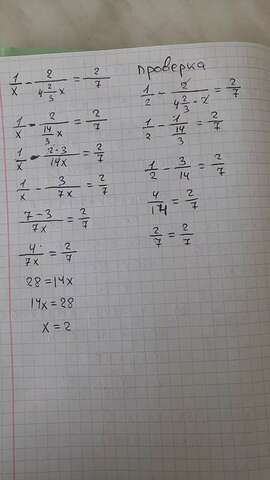 1/x - 2/(4 2/3 x) = 2/7
1/x - 2/(14/3 x) = 2/7
1/x - 2·3/14x = 2/7
1/x - 3/7x = 2/7
7-3/7x = 2/7
4/7x = 2/7
28 = 14x
14x = 28
x = 2
проверка
1/2 - 2/(4 2/3 · 2) = 2/7
1/2 - 1/(14/3) = 2/7
1/2 - 3/14 = 2/7
4/14 = 2/7
2/7 = 2/7